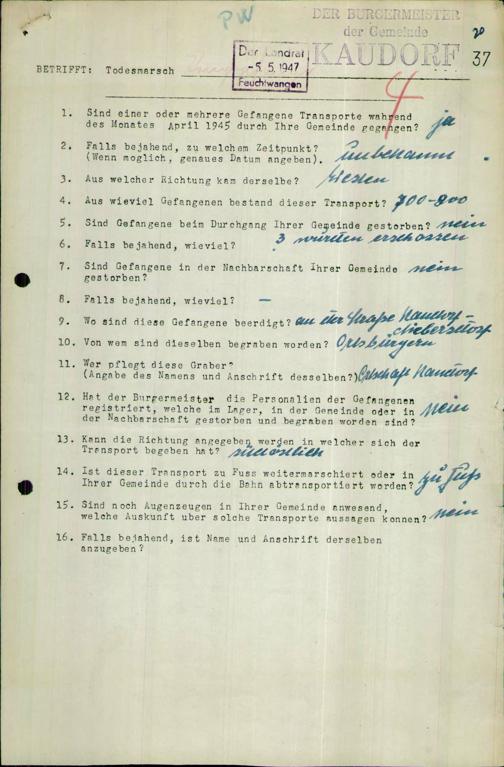 PW
DER BÜRGERMEISTER
der Gemeinde
KAUDORF
20
37
Der Landrat
-5. 5. 1947
Feuchtwangen
BETRIFFT: Todesmarsch
4
1. Sind einer oder mehrere Gefangene Transporte wahrend
des Monates April 1945 durch Ihre Gemeinde gegangen? ja
2. Falls bejahend, zu welchem Zeitpunkt?
(Wenn moglich, genaues Datum angeben). unbekannt
3. Aus welcher Richtung kam derselbe? Westen
4. Aus wieviel Gefangenen bestand dieser Transport? 700-800
5. Sind Gefangene beim Durchgang Ihrer Gemeinde gestorben? nein
6. Falls bejahend, wieviel? 3 wurden erschossen
7. Sind Gefangene in der Nachbarschaft Ihrer Gemeinde nein
gestorben?
8. Falls bejahend, wieviel? –
9. Wo sind diese Gefangene beerdigt? an der Straße Kaudorf-
10. Von wem sind dieselben begraben worden? Ortsbürgern
11. Wer pflegt diese Graber?
(Angabe des Namens und Anschrift desselben?) Ortschaft Kaudorf
12. Hat der Burgermeister die Personalien der Gefangenen
registriert, welche im Lager, in der Gemeinde oder in nein
der Nachbarschaft gestorben und begraben worden sind?
13. Kann die Richtung angegeben werden in welcher sich der
Transport begeben hat? südöstlich
14. Ist dieser Transport zu Fuss weitermarschiert oder in zu Fuß
Ihrer Gemeinde durch die Bahn abtransportiert worden?
15. Sind noch Augenzeugen in Ihrer Gemeinde anwesend,
welche Auskunft uber solche Transporte aussagen konnen? nein
16. Falls bejahend, ist Name und Anschrift derselben
anzugeben?